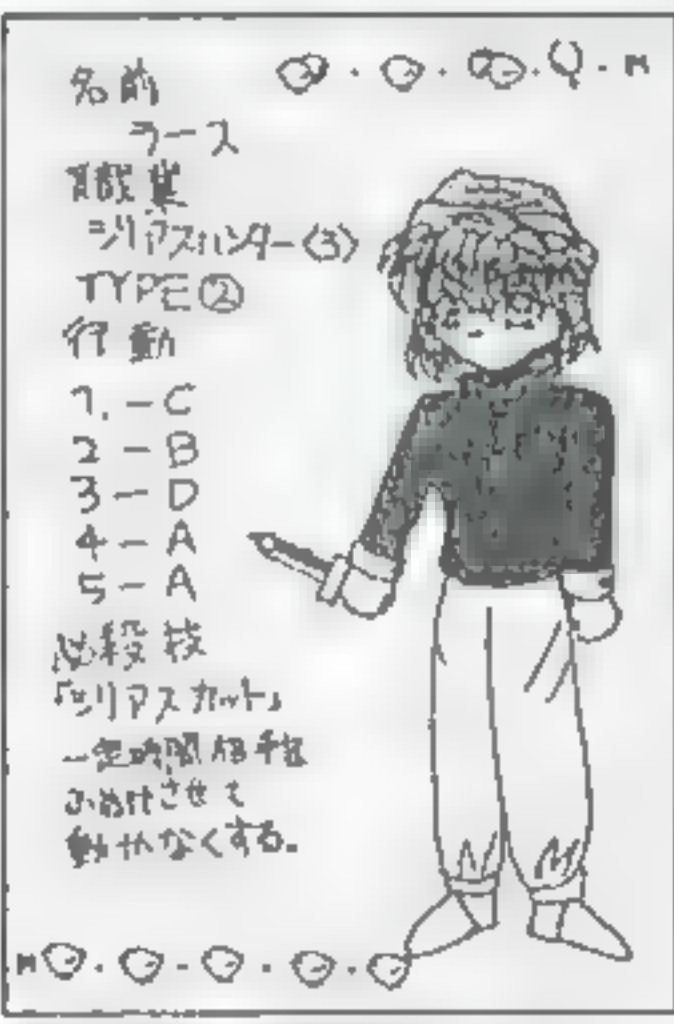 名前
ラース
職業
シリアスハンター〈3〉
TYPE②
行動
1.-C
2-B
3-D
4-A
5-A
必殺技
「シリアスカット」
一定時間相手を
させて
動けなくする。